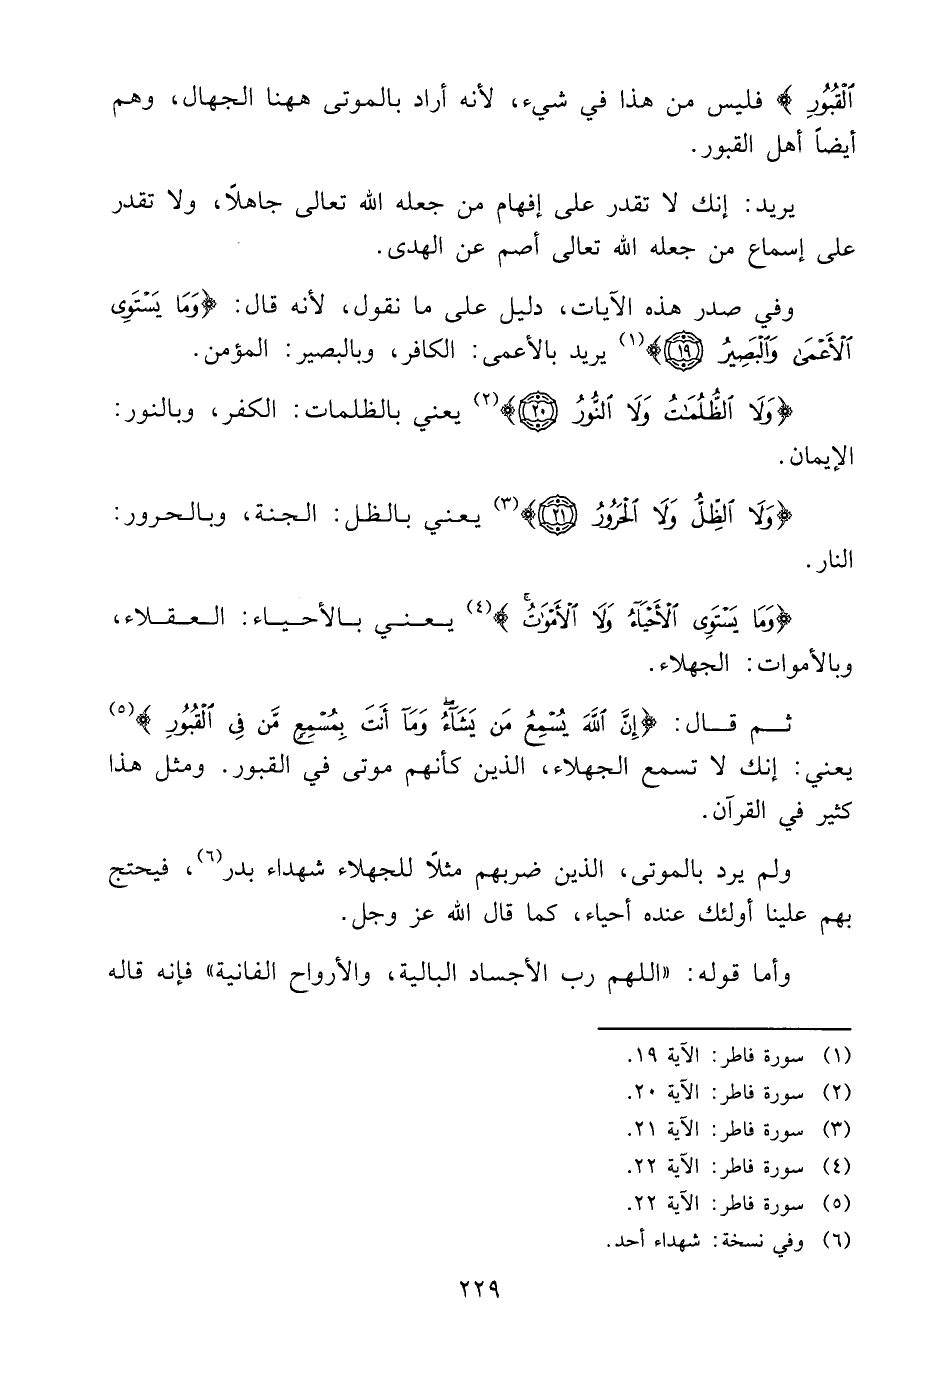 ٱلْقُبُورِ ﴾ فليس من هذا في شيء، لأنه أراد بالموتى ههنا الجهال، وهم
أيضاً أهل القبور.
يريد: إنك لا تقدر على إفهام من جعله الله تعالى جاهلاً، ولا تقدر
على إسماع من جعله الله تعالى أصم عن الهدى.
وفي صدر هذه الآيات، دليل على ما نقول، لأنه قال: ﴿وَمَا يَسْتَوِى
ٱلْأَعْمَىٰ وَٱلْبَصِيرُ ١٩﴾(١) يريد بالأعمى: الكافر، وبالبصير: المؤمن.
﴿وَلَا ٱلظُّلُمَٰتُ وَلَا ٱلنُّورُ ٢٠﴾(٢) يعني بالظلمات: الكفر، وبالنور:
الإيمان.
﴿وَلَا ٱلظِّلُّ وَلَا ٱلْحَرُورُ ٢١﴾(٣) يعني بالظل: الجنة، وبالحرور:
النار.
﴿وَمَا يَسْتَوِى ٱلْأَحْيَآءُ وَلَا ٱلْأَمْوَٰتُ ۚ ﴾(٤) يعني بالأحياء: العقلاء،
وبالأموات: الجهلاء.
ثم قال: ﴿إِنَّ ٱللَّهَ يُسْمِعُ مَن يَشَآءُ ۖ وَمَآ أَنتَ بِمُسْمِعٍ مَّن فِى ٱلْقُبُورِ ﴾(٥)
يعني: إنك لا تسمع الجهلاء، الذين كأنهم موتى في القبور. ومثل هذا
كثير في القرآن.
ولم يرد بالموتى، الذين ضربهم مثلاً للجهلاء شهداء بدر(٦)، فيحتج
بهم علينا أولئك عنده أحياء، كما قال الله عز وجل.
وأما قوله: «اللهم رب الأجساد البالية، والأرواح الفانية» فإنه قاله
(١) سورة فاطر: الآية ١٩.
(٢) سورة فاطر: الآية ٢٠.
(٣) سورة فاطر: الآية ٢١.
(٤) سورة فاطر: الآية ٢٢.
(٥) سورة فاطر: الآية ٢٢.
(٦) وفي نسخة: شهداء أحد.
٢٢٩